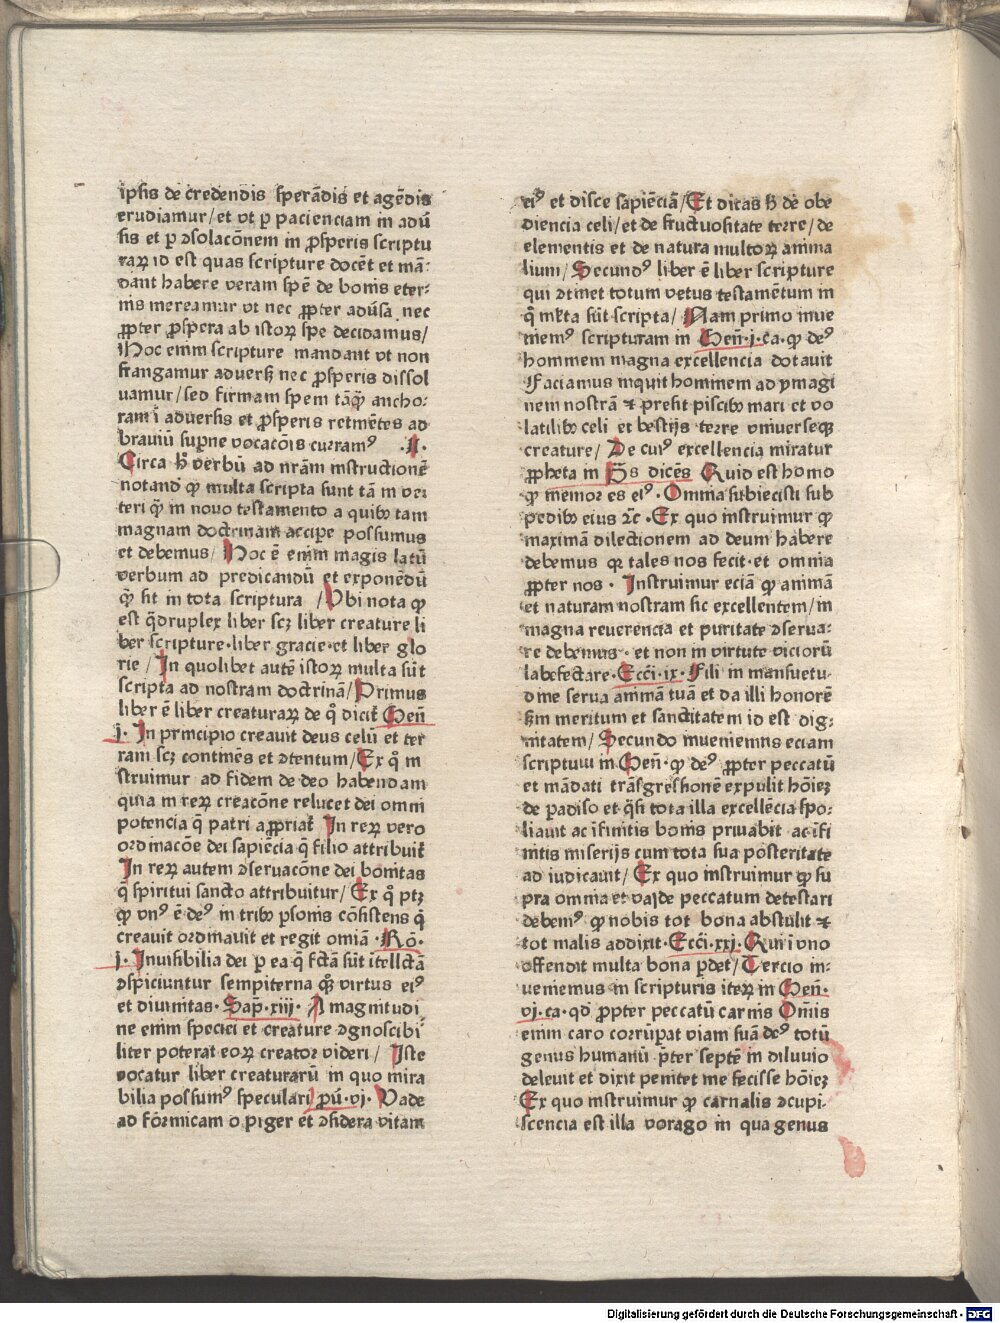 ipsis de credendis sperādis et agēdis
erudiamur/et vt p̄ pacienciam in adū
sis et p̄ ɔsolacōnem in p̱speris scriptu
raꝝ id est quas scripture docēt et mā-
dant habere veram spē de bonis eter-
nis mereamur vt nec p̱pter adūsa nec
p̱pter p̱spera ab istoꝝ spe decidamus/
Hoc enim scripture mandant vt non
frangamur aduersꝫ nec p̱speris dissol
uamur/sed firmam spem tāꝙ̄ ancho-
ram ī aduersis et p̱speris retinētes ad
brauiū supne vocatōis curramꝰ ·A·
Circa h̄ verbū ad nr̄am instructionē
notand ꝙ multa scripta sunt tā in ve-
teri ꝙ̄ in nouo testamento a quibꝰ tam
magnam doctrinam accipe possumus
et debemus/ Hoc ē enim magis latū
verbum ad predicandū et exponēdū
ꝙ̄ sit in tota scriptura /Vbi nota ꝙ
est q̄druplex liber scꝫ liber creature li
ber scripture·liber gracie·et liber glo
rie / In quolibet autē istoꝝ multa sūt
scripta ad nostram doctrinā/Primus
liber ē liber creaturaꝝ de qͦ dicit̄ Geñ
j· In principio creauit deus celū et ter
ram scꝫ continēs et ɔtentum/Ex qͦ in
struimur ad fidem de deo habendam
quia in reꝝ creacōne relucet dei omni
potencia q̄ patri app̱riat̄ In reꝝ vero
ordinacōe dei sapiēcia q̄ filio attribuit̄
In reꝝ autem ɔseruacōne dei bonitas
q̄ spiritui sancto attribuitur/ Ex qͦ ptꝫ
ꝙ vnꝰ ē deꝰ in tribꝰ p̱sonis cōsistens q̄
creauit ordinauit et regit omīa ·Rō·
j· Inuisibilia dei p̱ ea q̄ fctā sūt ītellctā
ɔspiciuntur sempiterna qꝫ virtus eiꝰ
et diuinitas· Sap̄·xiij· A magnitudi
ne enim speciei et creature ɔgnoscibi
liter poterat eoꝝ creator videri/ Iste
vocatur liber creaturarū in quo mira
bilia possumꝰ speculari/p̱ū·vj· Vade
ad formicam o piger et ɔsidera vitam
eiꝰ et disce sapiēciā/Et dicas h̄ dē obe
diencia celi/et de fructuositate terre/de
elementis et de natura multoꝝ anima
lium/ Secundꝰ liber ē liber scripture
qui ɔtinet totum vetus testamētum in
q̄ ml̄ta sūt scripta/ Nam primo inue
niemꝰ scripturam in Geñ·j·ca·ꝙ deꝰ
hominem magna excellencia dotauit
Faciamus inquit hominem ad ymagi
nem nostrā ⁊ presit piscibꝰ mari et vo
latilibꝰ celi et bestijs terre vniuerseqꝫ
creature/ De cuiꝰ excellencia miratur
p̱pheta in P̄s dicēs Quid est homo
ꝙ memor es eiꝰ· Omnia subiecisti sub
pedibꝰ eius ⁊c̄ ·Ex quo instruimur ꝙ
maximā dilectionem ad deum habere
debemus qr tales nos fecit·et omnia
p̱pter nos · Instruimur eciā ꝙ animā
et naturam nostram sic excellentem/in
magna reuerencia et puritate ɔserua-
re debemus· et non in virtute viciorū
labefectare·Ecc̄i·ix·Fili in mansuetu-
dine serua animam tuā et da illi honorē
scḋm meritum et sanctitatem id est dig-
nitatem/Secundo inueniemus eciam
scripturā in Geñ·ꝙ deꝰ p̱pter peccatū
et mādati trāsgressionē expulit hōieꝫ
de padiso et q̄si tota illa excellēcia spo-
liauit ac īfinitis bonis priuabit ac īfi
nitis miserijs cum tota sua posteritate
ad iudicauit/ Ex quo instruimur ꝙ su
pra omnia et valde peccatum detestari
debemꝰ ꝙ nobis tot bona abstulit ⁊
tot malis addixit·Ecc̄i·xxj·Qui ī vno
offendit multa bona p̱det/ Tercio in-
ueniemus in scripturis iteꝝ in Geñ·
vj·ca·qđ p̱pter peccatū carnis Om̄is
enim caro corrūpat viam suā deꝰ totū
genus humanū p̄ter septē in diluuio
deleuit et dixit penitet me fecisse hōieꝫ
Ex quo instruimur ꝙ carnalis ɔcupi-
scencia est illa vorago in qua genus
Digitalisierung gefördert durch die Deutsche Forschungsgemeinschaft - DFG